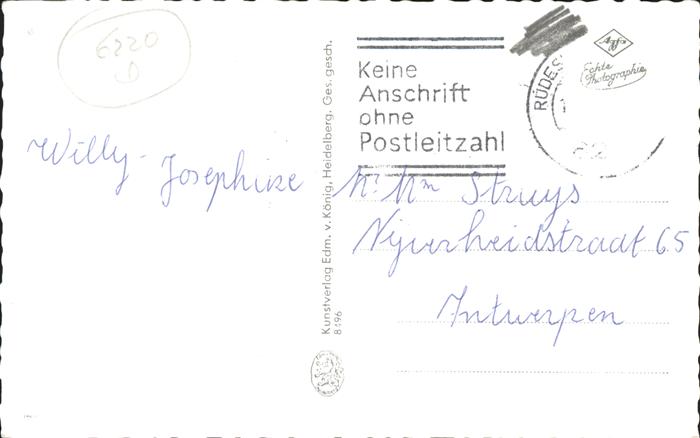 6220
D
Willy - Josephine
Kunstverlag Edm. v. König, Heidelberg. Ges. gesch.
8496
Keine
Anschrift
ohne
Postleitzahl
RÜDES
Agfa
Echte
Photographie
Mr Mm Struys
Nijverheidstraat 65
Antwerpen